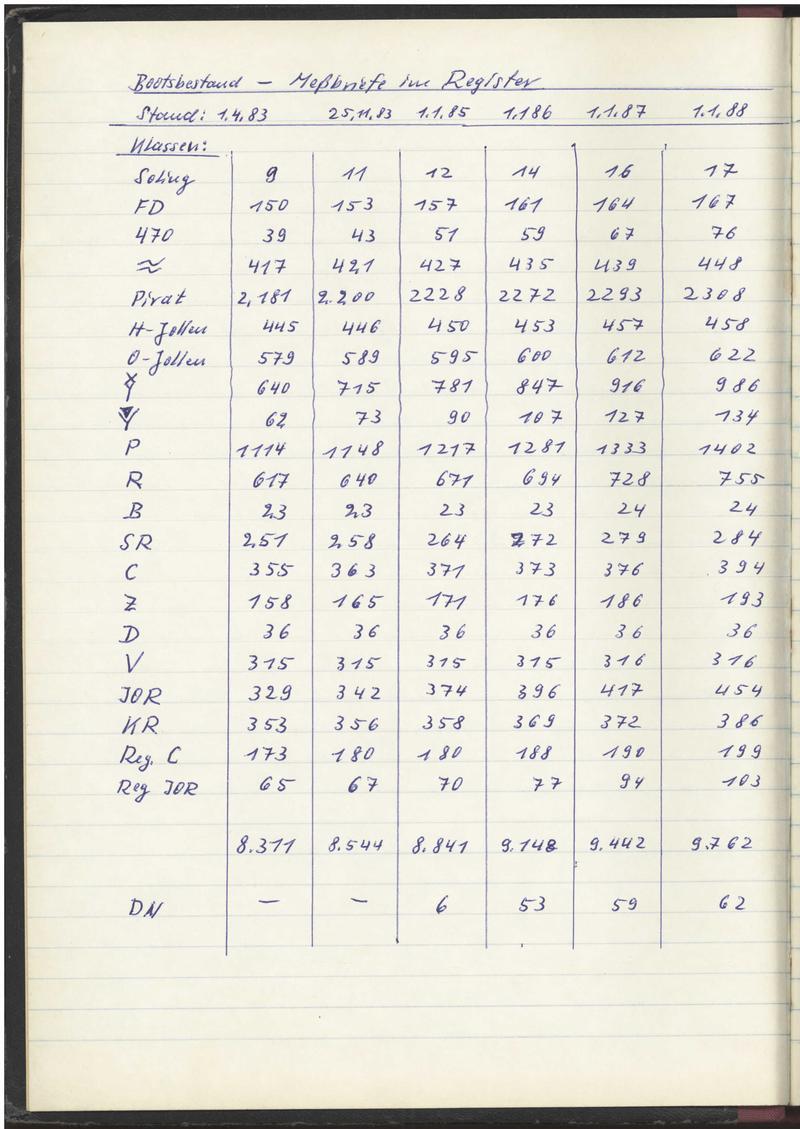 Bootsbestand – Meßbriefe im Register
Stand: 1.4.83 25.11.83 1.1.85 1.1.86 1.1.87 1.1.88
Klassen:
Soling 9 11 12 14 16 17
FD 150 153 157 161 164 167
470 39 43 51 59 67 76
≈ 417 421 427 435 439 448
Pirat 2.181 2.200 2228 2272 2293 2308
H-Jollen 445 446 450 453 457 458
O-Jollen 579 589 595 600 612 622
640 715 781 847 916 986
62 73 90 107 127 134
P 1114 1148 1217 1281 1333 1402
R 617 640 671 694 728 755
B 23 23 23 23 24 24
SR 251 258 264 272 279 284
C 355 363 371 373 376 394
Z 158 165 171 176 186 193
D 36 36 36 36 36 36
V 315 315 315 315 316 316
IOR 329 342 374 396 417 454
KR 353 356 358 369 372 386
Reg. C 173 180 180 188 190 199
Reg IOR 65 67 70 77 94 103
8.311 8.544 8.841 9.148 9.442 9.762
DN — — 6 53 59 62